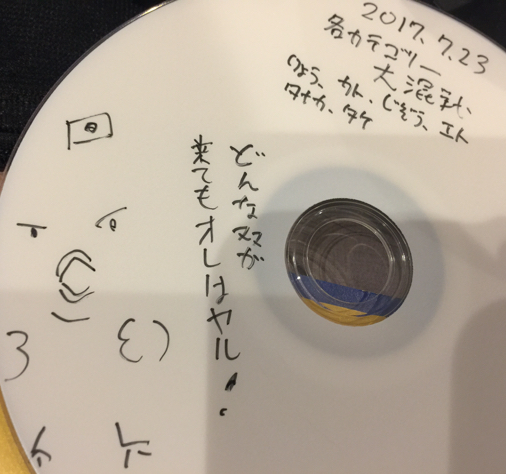 2017.7.23
各カテゴリー
大混戦
りょう、カト、じぞう、エト
タナカ、タケ
どんな奴が
来てもオレはヤル!